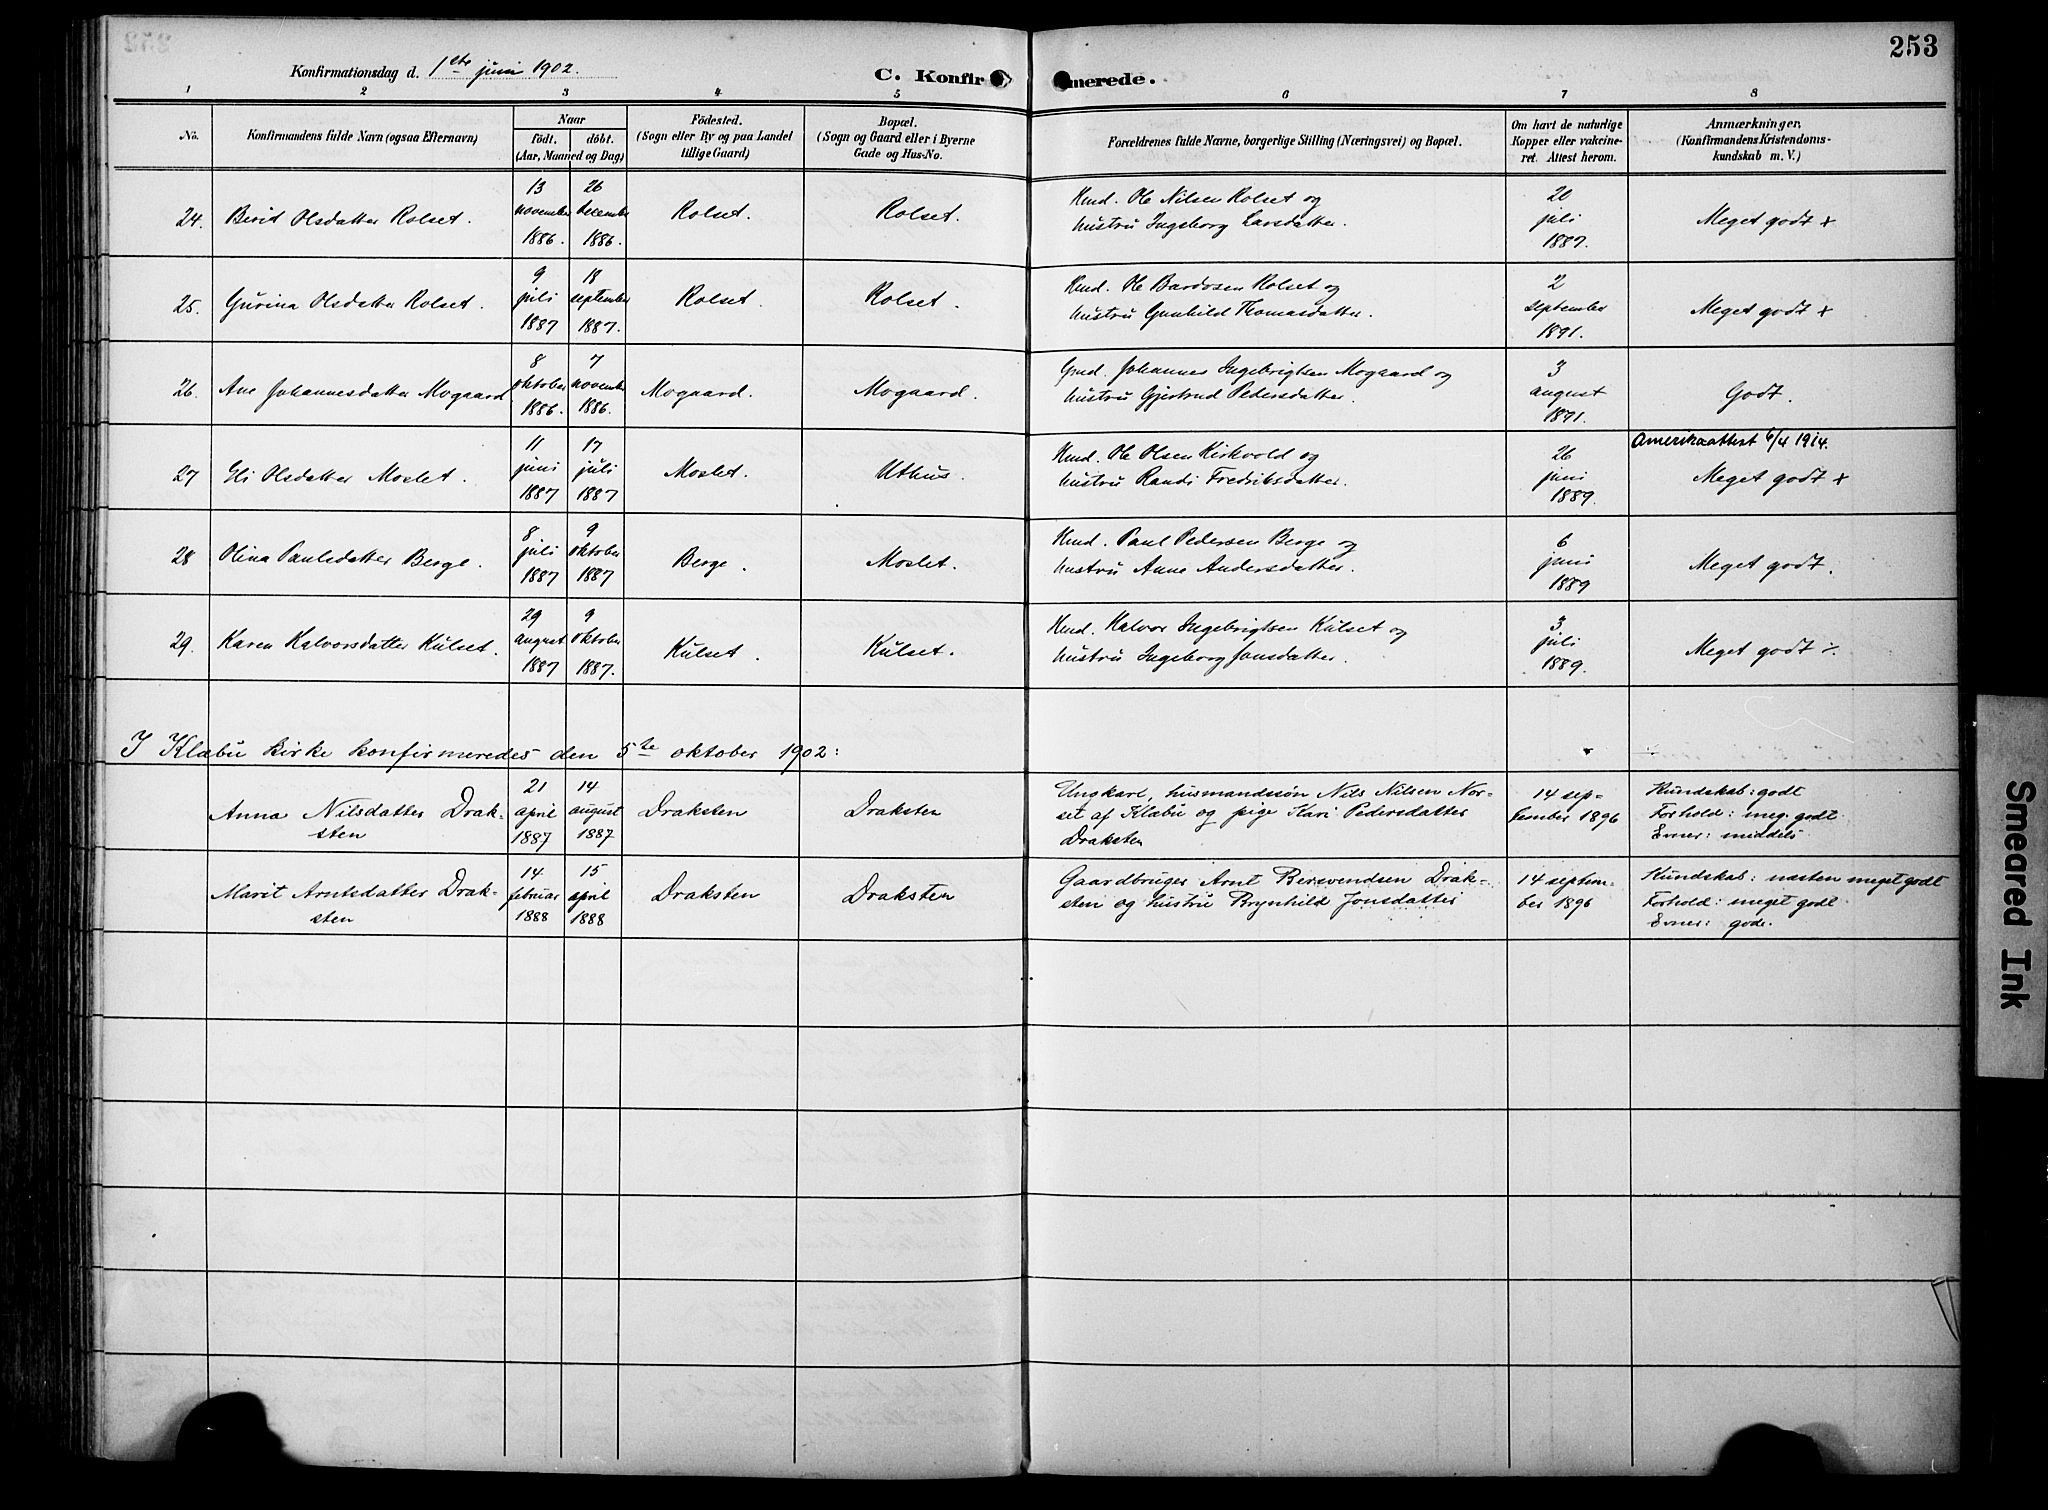 253
Konfirmationsdag d. 1ste juni 1902.
C. Konfirmerede.
1 2 3 4 5 6 7 8
No.
Konfirmandens fulde Navn (ogsaa Efternavn)
Naar
født. døbt.
(Aar, Maaned og Dag)
Födested.
(Sogn eller By og paa Landet
tillige Gaard)
Bopæl.
(Sogn og Gaard eller i Byerne
Gade og Hus-No.
Forældrenes fulde Navne, borgerlige Stilling (Næringsvei) og Bopæl.
Om havt de naturlige
Kopper eller vakcine-
ret. Attest herom.
Anmærkninger,
(Konfirmandens Kristendoms-
kundskab m. V.)
24. Berit Olsdatter Rolset. 13 november 1886. 26 december 1886. Rolset. Rolset.
Hmd. Ole Nilsen Rolset og
hustru Ingeborg Larsdatter.
20 juli 1887. Meget godt +
25. Gurina Olsdatter Rolset. 9 juli 1887 18 september 1887. Rolset. Rolset.
Hmd. Ole Bardosen Rolset og
hustru Gunhild Thomasdatter.
2 september 1891. Meget godt +
26. Ane Johannesdatter Mogaard 8 oktober 1886. 7 november 1886. Mogaard. Mogaard.
Gmd. Johannes Ingebrigtsen Mogaard og
hustru Gjertrud Pedersdatter.
3 august 1891. Godt.
Amerikaattest 6/4 1914.
27 Eli Olsdatter Moslet. 11 juni 1887 17 juli 1887 Moslet. Uthus.
Hmd. Ole Olsen Kirkvold og
hustru Randi Fredriksdatter.
26 juni 1889. Meget godt +
28 Olina Paulsdatter Berge. 8 juli 1887 9 oktober 1887 Berge. Moslet.
Hmd. Paul Pedersen Berge og
hustru Anne Andersdatter.
6 juni 1889 Meget godt.
29. Karen Halvorsdatter Kulset. 29 august 1887 9 oktober 1887. Kulset. Kulset.
Hmd. Halvor Ingebrigtsen Kulset og
hustru Ingeborg Jonsdatter.
3 juli 1889. Meget godt
I Klæbu kirke konfirmeredes den 5te oktober 1902:
Anna Nilsdatter Drak-
sten
21 april 1887 14 august 1887 Draksten Draksten
Ungkarl, husmandssøn Nils Nilsen Nor-
set af Klæbu og pige Kari Pedersdatter
Draksten
14 sep-
tember 1896
Kundskab: godt
Forhold: meg. godt
Evner: middels
Marit Arntsdatter Drak-
sten
14 februar 1888 15 april 1888 Draksten Draksten
Gaardbruger Arnt Bersvendsen Drak-
sten og hustru Brynhild Jonsdatter
14 septem-
ber 1896
Kundskab: næsten meget godt
Forhold: meget godt
Evner: gode.
Smeared Ink